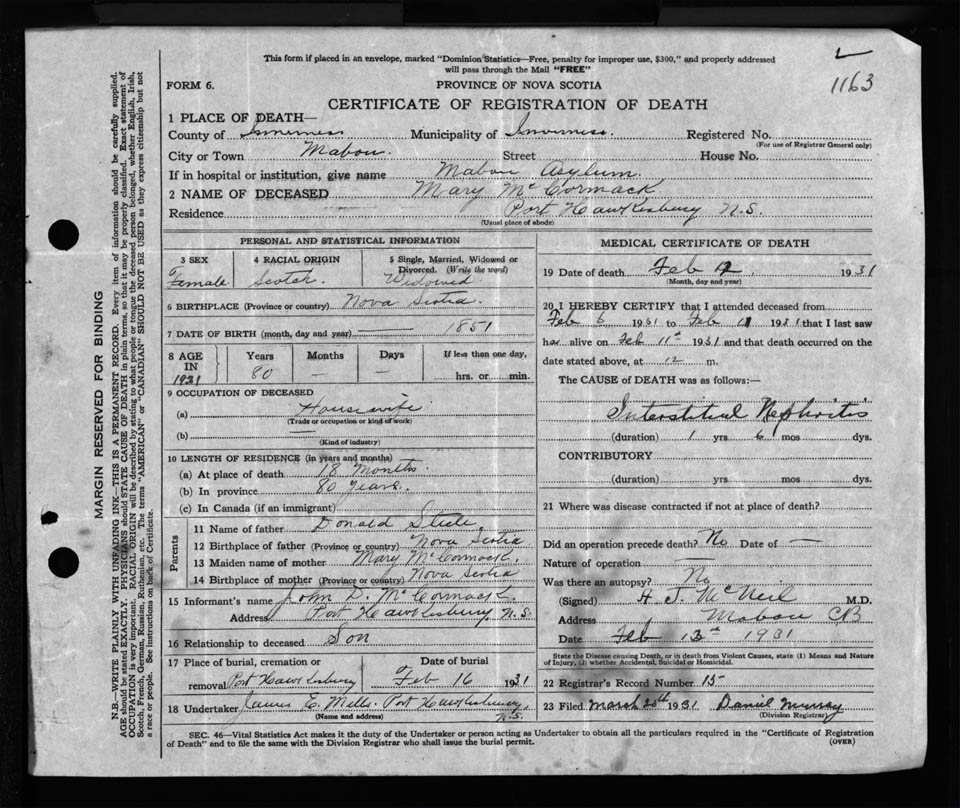 This form if placed in an envelope, marked "Dominion Statistics—Free, penalty for improper use, $300," and properly addressed
will pass through the Mail "FREE"
1163
FORM 6.
PROVINCE OF NOVA SCOTIA
CERTIFICATE OF REGISTRATION OF DEATH
1 PLACE OF DEATH—
County of Inverness Municipality of Inverness. Registered No.
(For use of Registrar General only)
City or Town Mabou. Street House No.
If in hospital or institution, give name Mabou Asylum.
2 NAME OF DECEASED Mary McCormack.
Residence Port Hawkesbury N.S.
(Usual place of abode)
PERSONAL AND STATISTICAL INFORMATION
3 SEX 4 RACIAL ORIGIN 5 Single, Married, Widowed or Divorced. (Write the word)
Female. Scotch. Widowed
6 BIRTHPLACE (Province or country) Nova Scotia.
7 DATE OF BIRTH (month, day and year) 1851
8 AGE IN 1931 Years Months Days If less than one day,
80 — — hrs. or min.
9 OCCUPATION OF DECEASED
(a) Housewife
(Trade or occupation or kind of work)
(b)
(Kind of industry)
10 LENGTH OF RESIDENCE (in years and months)
(a) At place of death 18 Months.
(b) In province 80 years.
(c) In Canada (if an immigrant)
Parents
11 Name of father Donald Steele.
12 Birthplace of father (Province or country) Nova Scotia
13 Maiden name of mother Mary McCormack.
14 Birthplace of mother (Province or country) Nova Scotia
15 Informant's name John D. McCormack.
Address Port Hawkesbury, N.S.
16 Relationship to deceased Son
17 Place of burial, cremation or removal Port Hawkesbury Date of burial Feb 16 1931
18 Undertaker James E. Mills. Port Hawkesbury, N.S.
(Name and address)
MEDICAL CERTIFICATE OF DEATH
19 Date of death Feb 12 1931
(Month, day and year)
20 I HEREBY CERTIFY that I attended deceased from
Feb 6 1931 to Feb 11 1931 that I last saw
her alive on Feb 11th 1931 and that death occurred on the
date stated above, at 12 m.
The CAUSE of DEATH was as follows:—
Interstitial Nephritis
(duration) 1 yrs 6 mos dys.
CONTRIBUTORY
(duration) yrs mos dys.
21 Where was disease contracted if not at place of death?
Did an operation precede death? No Date of —
Nature of operation —
Was there an autopsy? No
(Signed) H J. McNeil M.D.
Address Mabou CB
Date Feb 13th 1931
State the Disease causing Death, or in death from Violent Causes, state (1) Means and Nature of Injury, (2) whether Accidental, Suicidal or Homicidal.
22 Registrar's Record Number 15
23 Filed March 26th 1931 Daniel Murray
(Division Registrar)
SEC. 46—Vital Statistics Act makes it the duty of the Undertaker or person acting as Undertaker to obtain all the particulars required in the "Certificate of Registration
of Death" and to file the same with the Division Registrar who shall issue the burial permit.
(OVER)
MARGIN RESERVED FOR BINDING
N.B.—WRITE PLAINLY WITH UNFADING INK—THIS IS A PERMANENT RECORD. Every item of information should be carefully supplied.
AGE should be stated EXACTLY. PHYSICIANS should STATE CAUSE OF DEATH in plain terms, so that it may be properly classified. Exact statement of
OCCUPATION is very important. RACIAL ORIGIN will be described by stating to what people or tongue the deceased person belonged, whether English, Irish,
Scotch, French, German, Russian, Ruthenian, etc. The terms "AMERICAN" or "CANADIAN" SHOULD NOT BE USED as they express citizenship but not
a race or people. See instructions on back of Certificate.